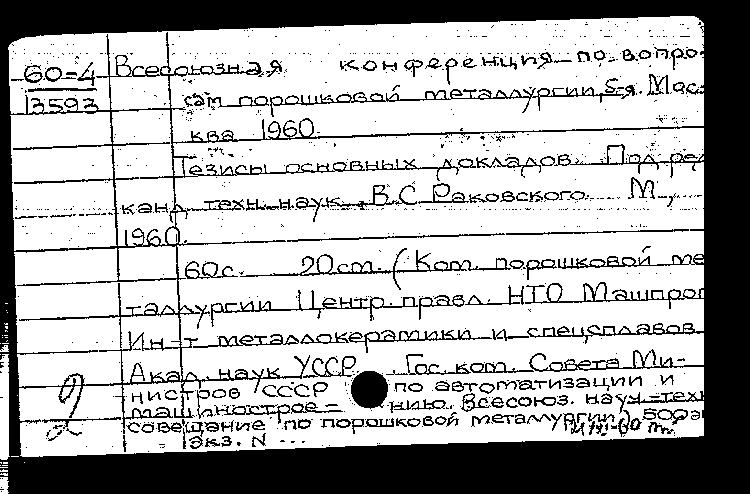 60-4
13593
Всесоюзная конференция по вопро-
сам порошковой металлургии, 5-я. Мос-
ква 1960.
Тезисы основных докладов. Под ред
канд. техн. наук В.С. Раковского. М.,
1960.
60с. 20см. (Ком. порошковой ме
таллургии Центр. правл. НТО Машпром
Ин-т металлокерамики и спецсплавов
Акад. наук УССР. Гос. ком. Совета Ми-
нистров СССР по автоматизации и
машинострое- нию. Всесоюз. науч.-техн
совещание по порошковой металлургии) 500э
Экз. N ...